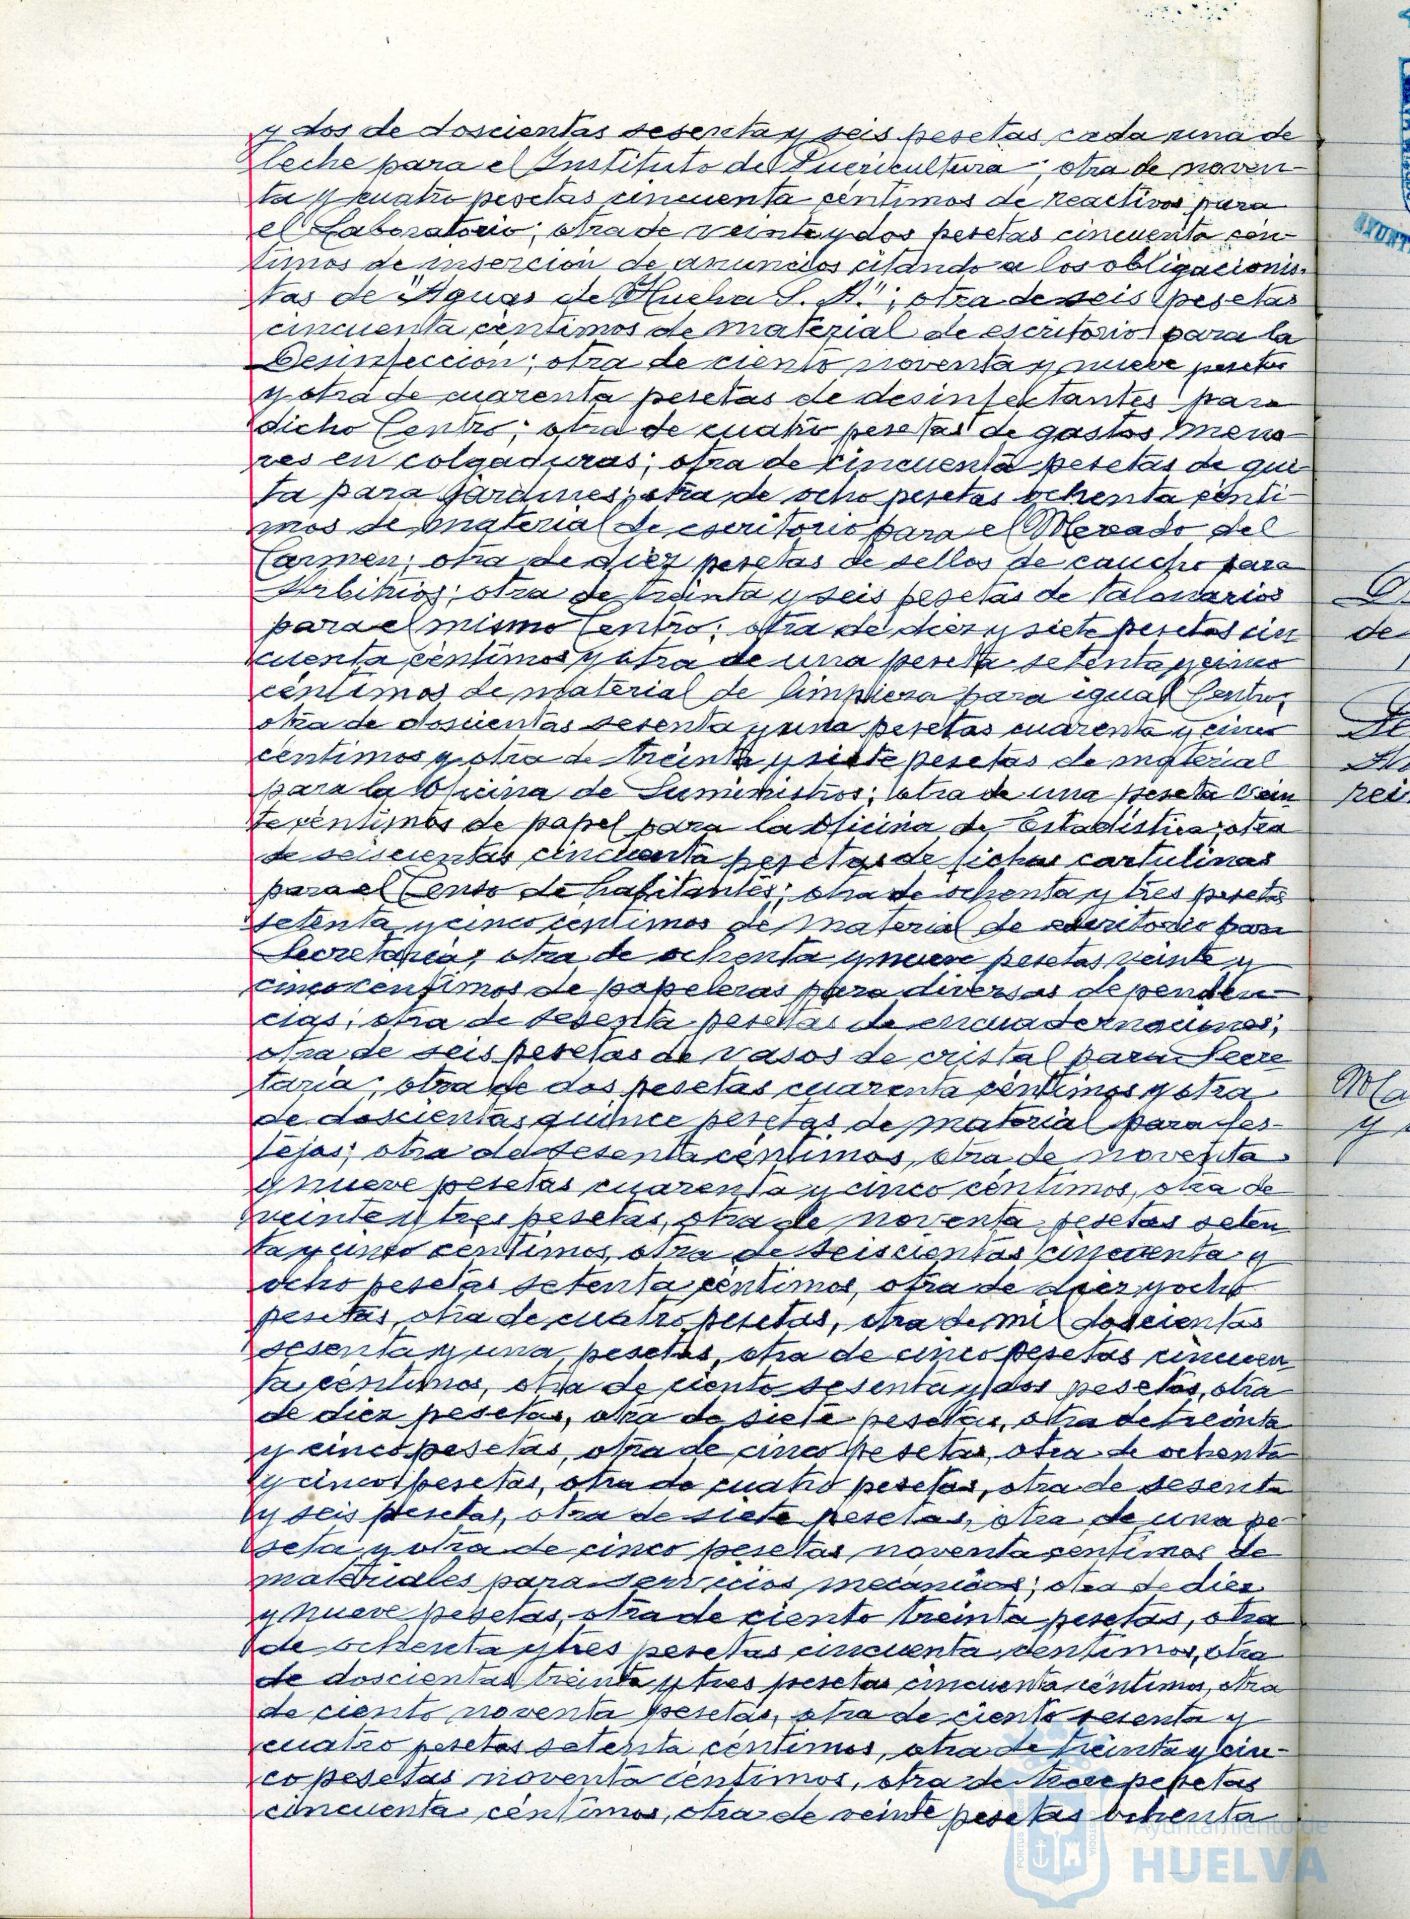 y dos de doscientas sesenta y seis pesetas cada una de
leche para el Instituto de Puericultura; otra de noven-
ta y cuatro pesetas cincuenta céntimos de reactivos para
el Laboratorio; otra de veinte y dos pesetas cincuenta cén-
timos de inserción de anuncios citando a los obligacionis-
tas de "Aguas de Huelva S. A."; otra de seis pesetas
cincuenta céntimos de material de escritorio para la
Desinfección; otra de ciento noventa y nueve pesetas
y otra de cuarenta pesetas de desinfectantes para
dicho Centro; otra de cuatro pesetas de gastos meno-
res en colgaduras; otra de cincuenta pesetas de gui-
ta para jardines; otra de ocho pesetas ochenta cénti-
mos de material de escritorio para el Mercado del
Carmen; otra de diez pesetas de sellos de caucho para
Arbitrios; otra de treinta y seis pesetas de talonarios
para el mismo Centro; otra de diez y siete pesetas cin
cuenta céntimos y otra de una peseta setenta y cinco
céntimos de material de limpieza para igual Centro;
otra de doscientas sesenta y una pesetas cuarenta y cinco
céntimos y otra de treinta y siete pesetas de material
para la Oficina de Suministros; otra de una peseta vein
te céntimos de papel para la Oficina de Estadística; otra
de seiscientas cincuenta pesetas de fichas cartulinas
para el Censo de habitantes; otra de ochenta y tres pesetas
setenta y cinco céntimos de material de escritorio para
Secretaría; otra de ochenta y nueve pesetas veinte y
cinco céntimos de papeleras para diversas dependen-
cias; otra de sesenta pesetas de encuadernaciones;
otra de seis pesetas de vasos de cristal para Secre-
taría; otra de dos pesetas cuarenta céntimos y otra
de doscientas quince pesetas de material para fes-
tejos; otra de sesenta céntimos, otra de noventa
y nueve pesetas cuarenta y cinco céntimos, otra de
veinte y tres pesetas, otra de noventa pesetas seten
ta y cinco céntimos, otra de seiscientas cincuenta y
ocho pesetas setenta céntimos, otra de diez y ocho
pesetas, otra de cuatro pesetas, otra de mil doscientas
sesenta y una pesetas, otra de cinco pesetas cincuen
ta céntimos, otra de ciento sesenta y dos pesetas, otra
de diez pesetas, otra de siete pesetas, otra de treinta
y cinco pesetas, otra de cinco pesetas, otra de ochenta
y cinco pesetas, otra de cuatro pesetas, otra de sesenta
y seis pesetas, otra de siete pesetas, otra de una pe-
seta y otra de cinco pesetas noventa céntimos de
materiales para servicios mecánicos; otra de diez
y nueve pesetas, otra de ciento treinta pesetas, otra
de ochenta y tres pesetas cincuenta céntimos, otra
de doscientas treinta y tres pesetas cincuenta céntimos, otra
de ciento noventa pesetas, otra de ciento sesenta y
cuatro pesetas setenta céntimos, otra de treinta y cin-
co pesetas noventa céntimos, otra de trece pesetas
cincuenta céntimos, otra de veinte pesetas ochenta
Ayuntamiento de
HUELVA